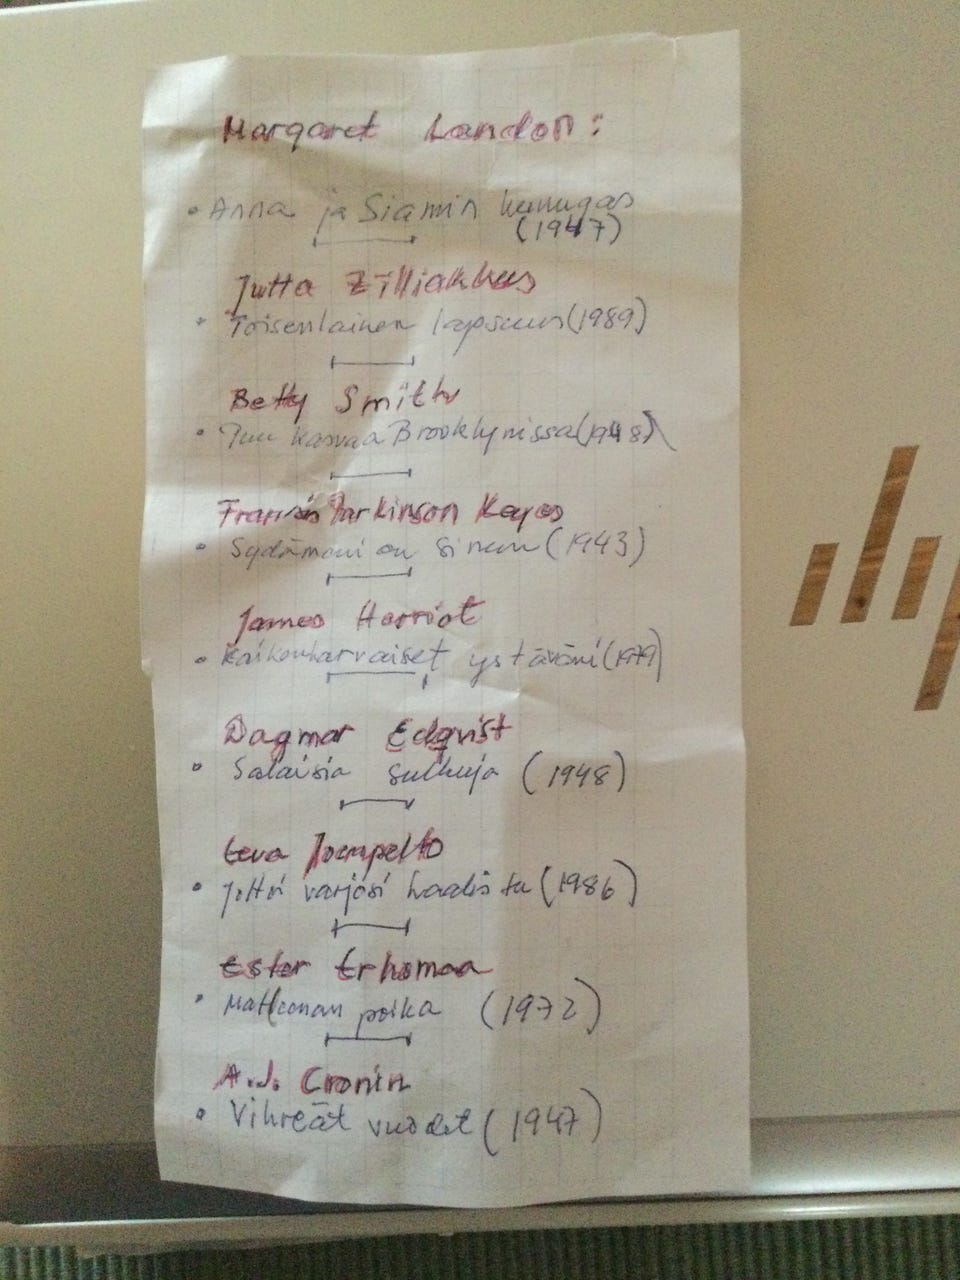 Margaret Landon:
• Anna ja Siamin kuningas
(1947)
Jutta Zilliakkus
• Toisenlainen lapsuus (1989)
Betty Smith
• Puu kasvaa Brooklynissa (1948)
Frances Parkinson Keyes
• Sydämeni on sinun (1943)
James Harriot
• Kaikenkarvaiset ystäväni (1979)
Dagmar Edqvist
• Salaisia sulkuja (1948)
Eeva Joenpelto
• Jottei varjosi haalistu (1986)
Ester Erhomaa
• poika (1972)
A.J. Cronin
• Vihreät vuodet (1947)
hp